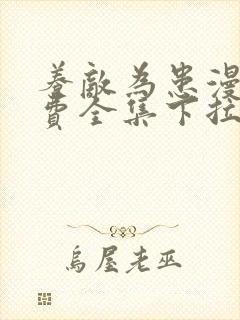 养敌为患漫
费全集下拉
乌屋老巫